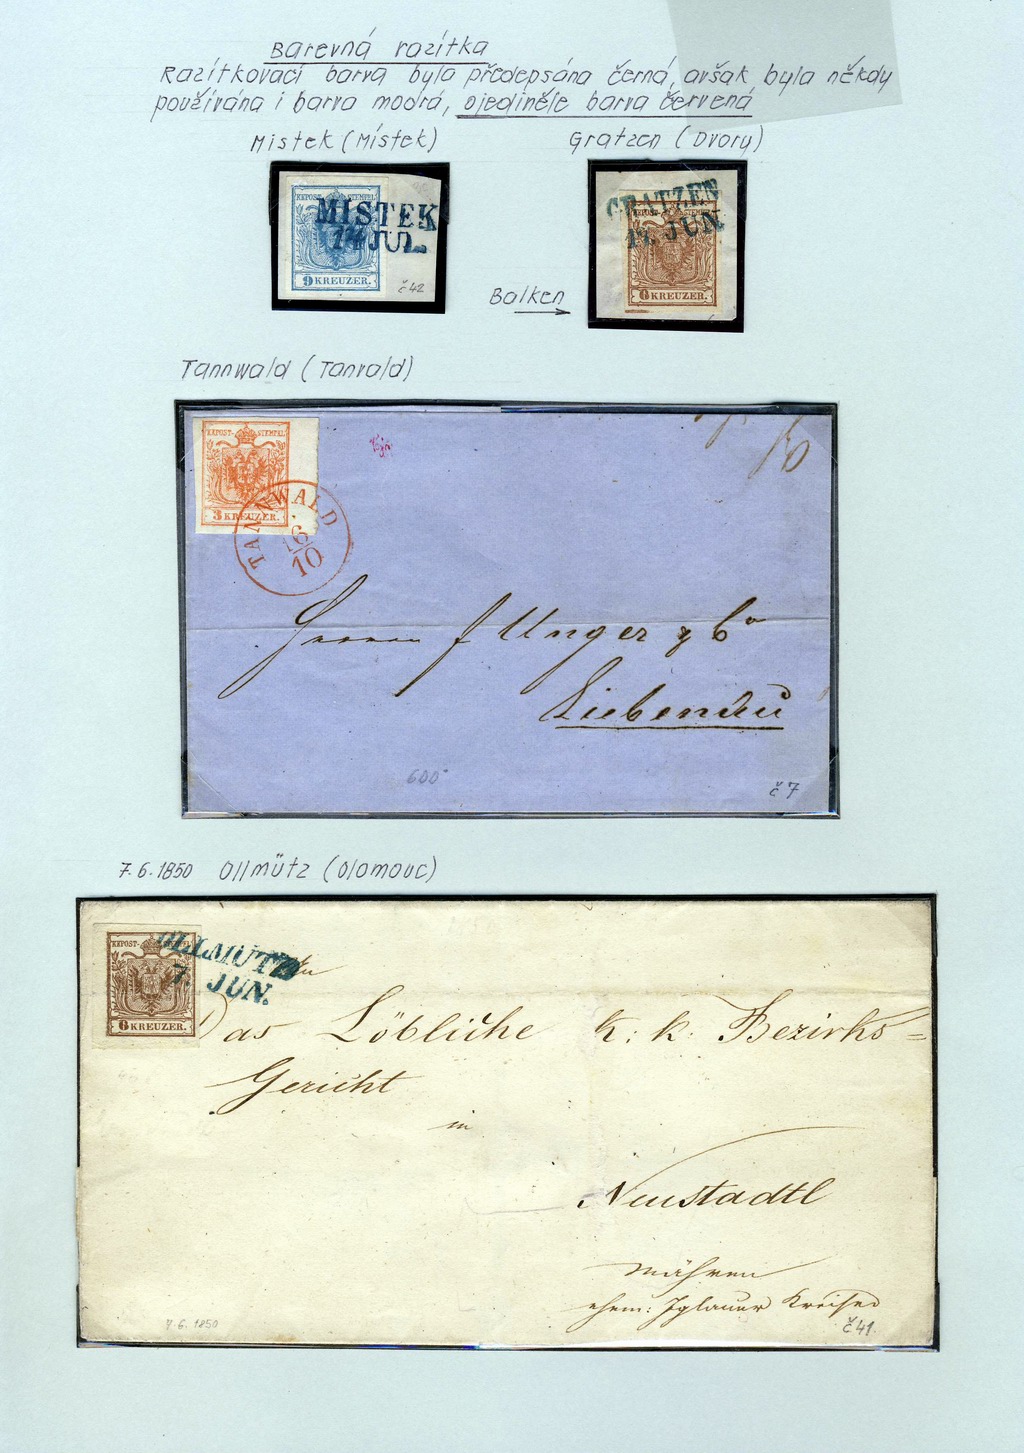 Barevná razítka
Razítkovací barva byla předepsána černá, avšak byla někdy
používána i barva modrá, ojediněle barva červená
Mistek (Místek)
Gratzen (Dvory)
KKPOST-STEMPEL
MISTEK
14 JUL.
9 KREUZER.
č 42
GRATZEN
17. JUN.
6 KREUZER.
Balken
Tannwald (Tanvald)
KKPOST-STEMPEL
3 KREUZER.
TANNWALD
16/10
Herrn J Unger & Co
Liebenau
600
č 7
7.6.1850 Ollmütz (Olomouc)
KKPOST-STEMPEL
OLLMÜTZ
7. JUN.
6 KREUZER.
An
Das Löbliche k: k: Bezirks=
Gericht
in
Neustadtl
Mähren
ehem: Iglauer Kreises
7.6.1850
č 41.